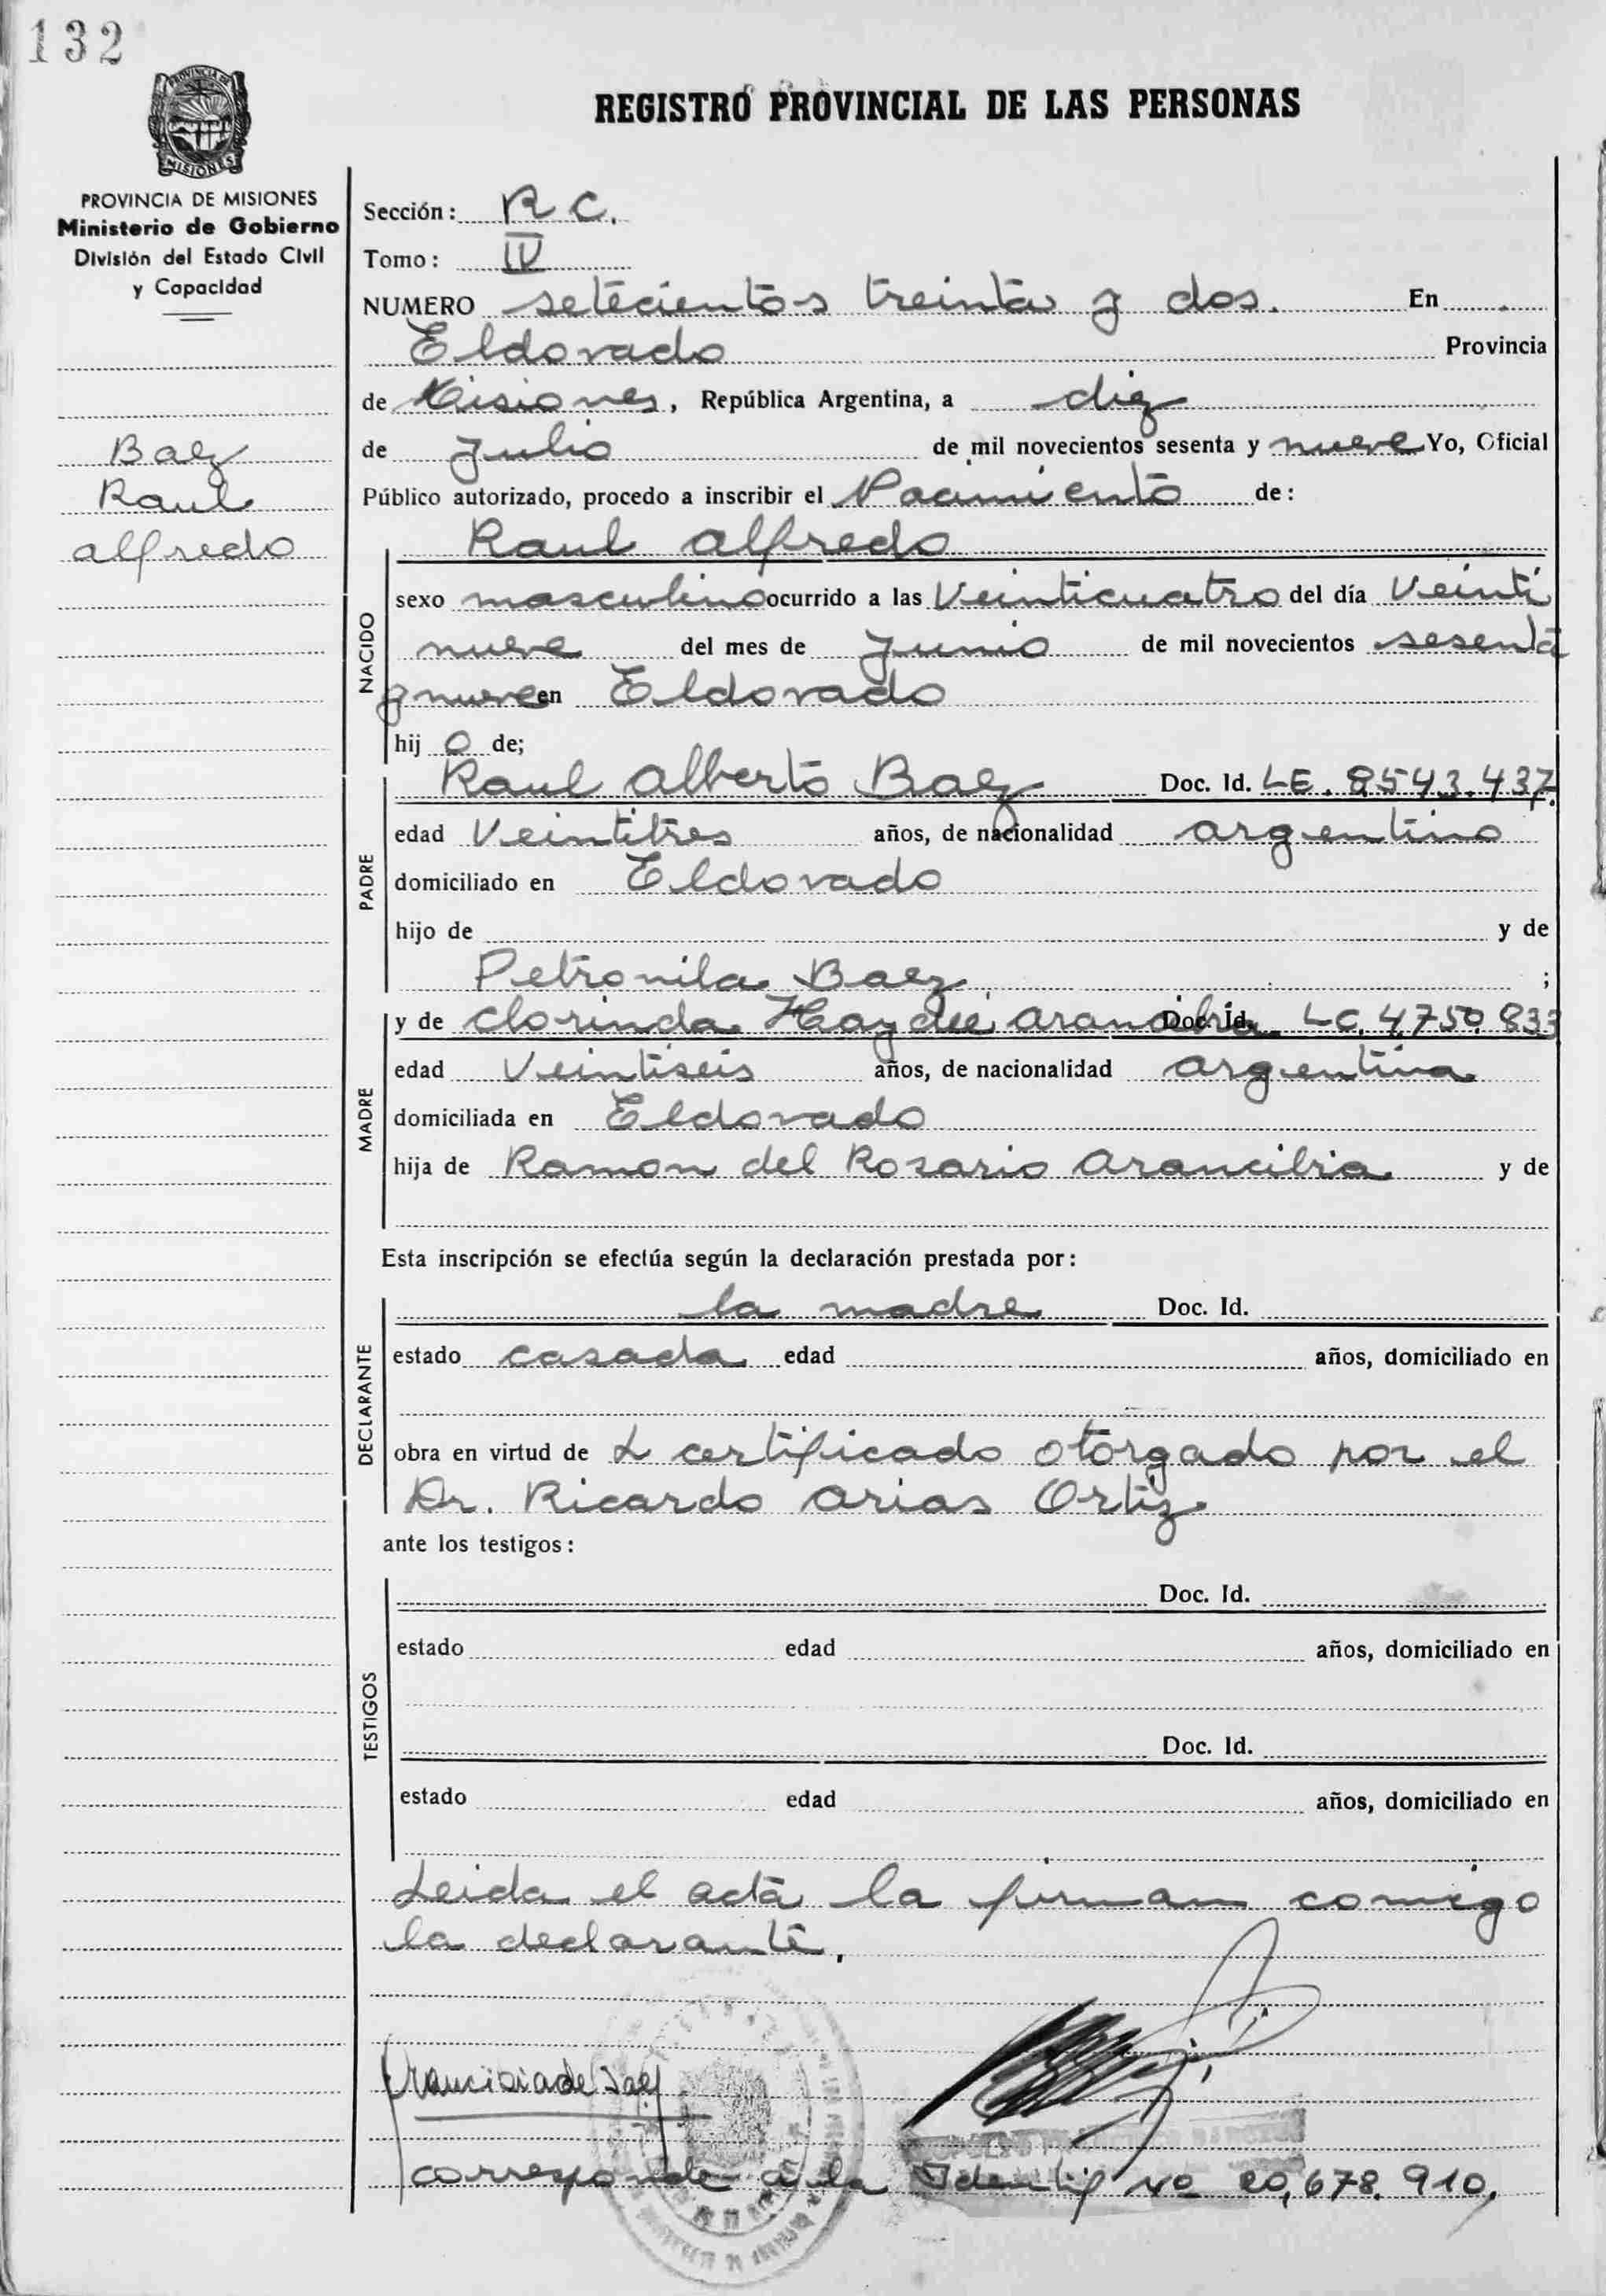 132
PROVINCIA DE
MISIONES
REGISTRO PROVINCIAL DE LAS PERSONAS
PROVINCIA DE MISIONES
Ministerio de Gobierno
División del Estado Civil
y Capacidad
Baez
Raul
alfredo
Sección: R C.
Tomo: IV
NUMERO setecientos treinta y dos. En
Eldorado Provincia
de Misiones, República Argentina, a diez
de Julio de mil novecientos sesenta y nueve Yo, Oficial
Público autorizado, procedo a inscribir el Nacimiento de:
Raul alfredo
NACIDO
sexo masculino ocurrido a las Veinticuatro del día Veinti
nueve del mes de Junio de mil novecientos sesenta
y nueve en Eldorado
hij o de;
PADRE
Raul alberto Baez Doc. Id. LE. 8543.437.
edad Veintitres años, de nacionalidad argentino
domiciliado en Eldorado
hijo de y de
Petronila Baez ;
MADRE
y de Clorinda Haydeé arancibia Doc. Id. LC. 4,750.833
edad Veintiseis años, de nacionalidad argentina
domiciliada en Eldorado
hija de Ramon del Rosario arancibia y de
Esta inscripción se efectúa según la declaración prestada por:
DECLARANTE
la madre Doc. Id.
estado casada edad años, domiciliado en
obra en virtud de L certificado otorgado por el
Dr. Ricardo arias Ortiz
ante los testigos:
TESTIGOS
Doc. Id.
estado edad años, domiciliado en
Doc. Id.
estado edad años, domiciliado en
Leida el acta la firman comigo
la declarante.
corresponde a la Identif Nº 20,678.910.